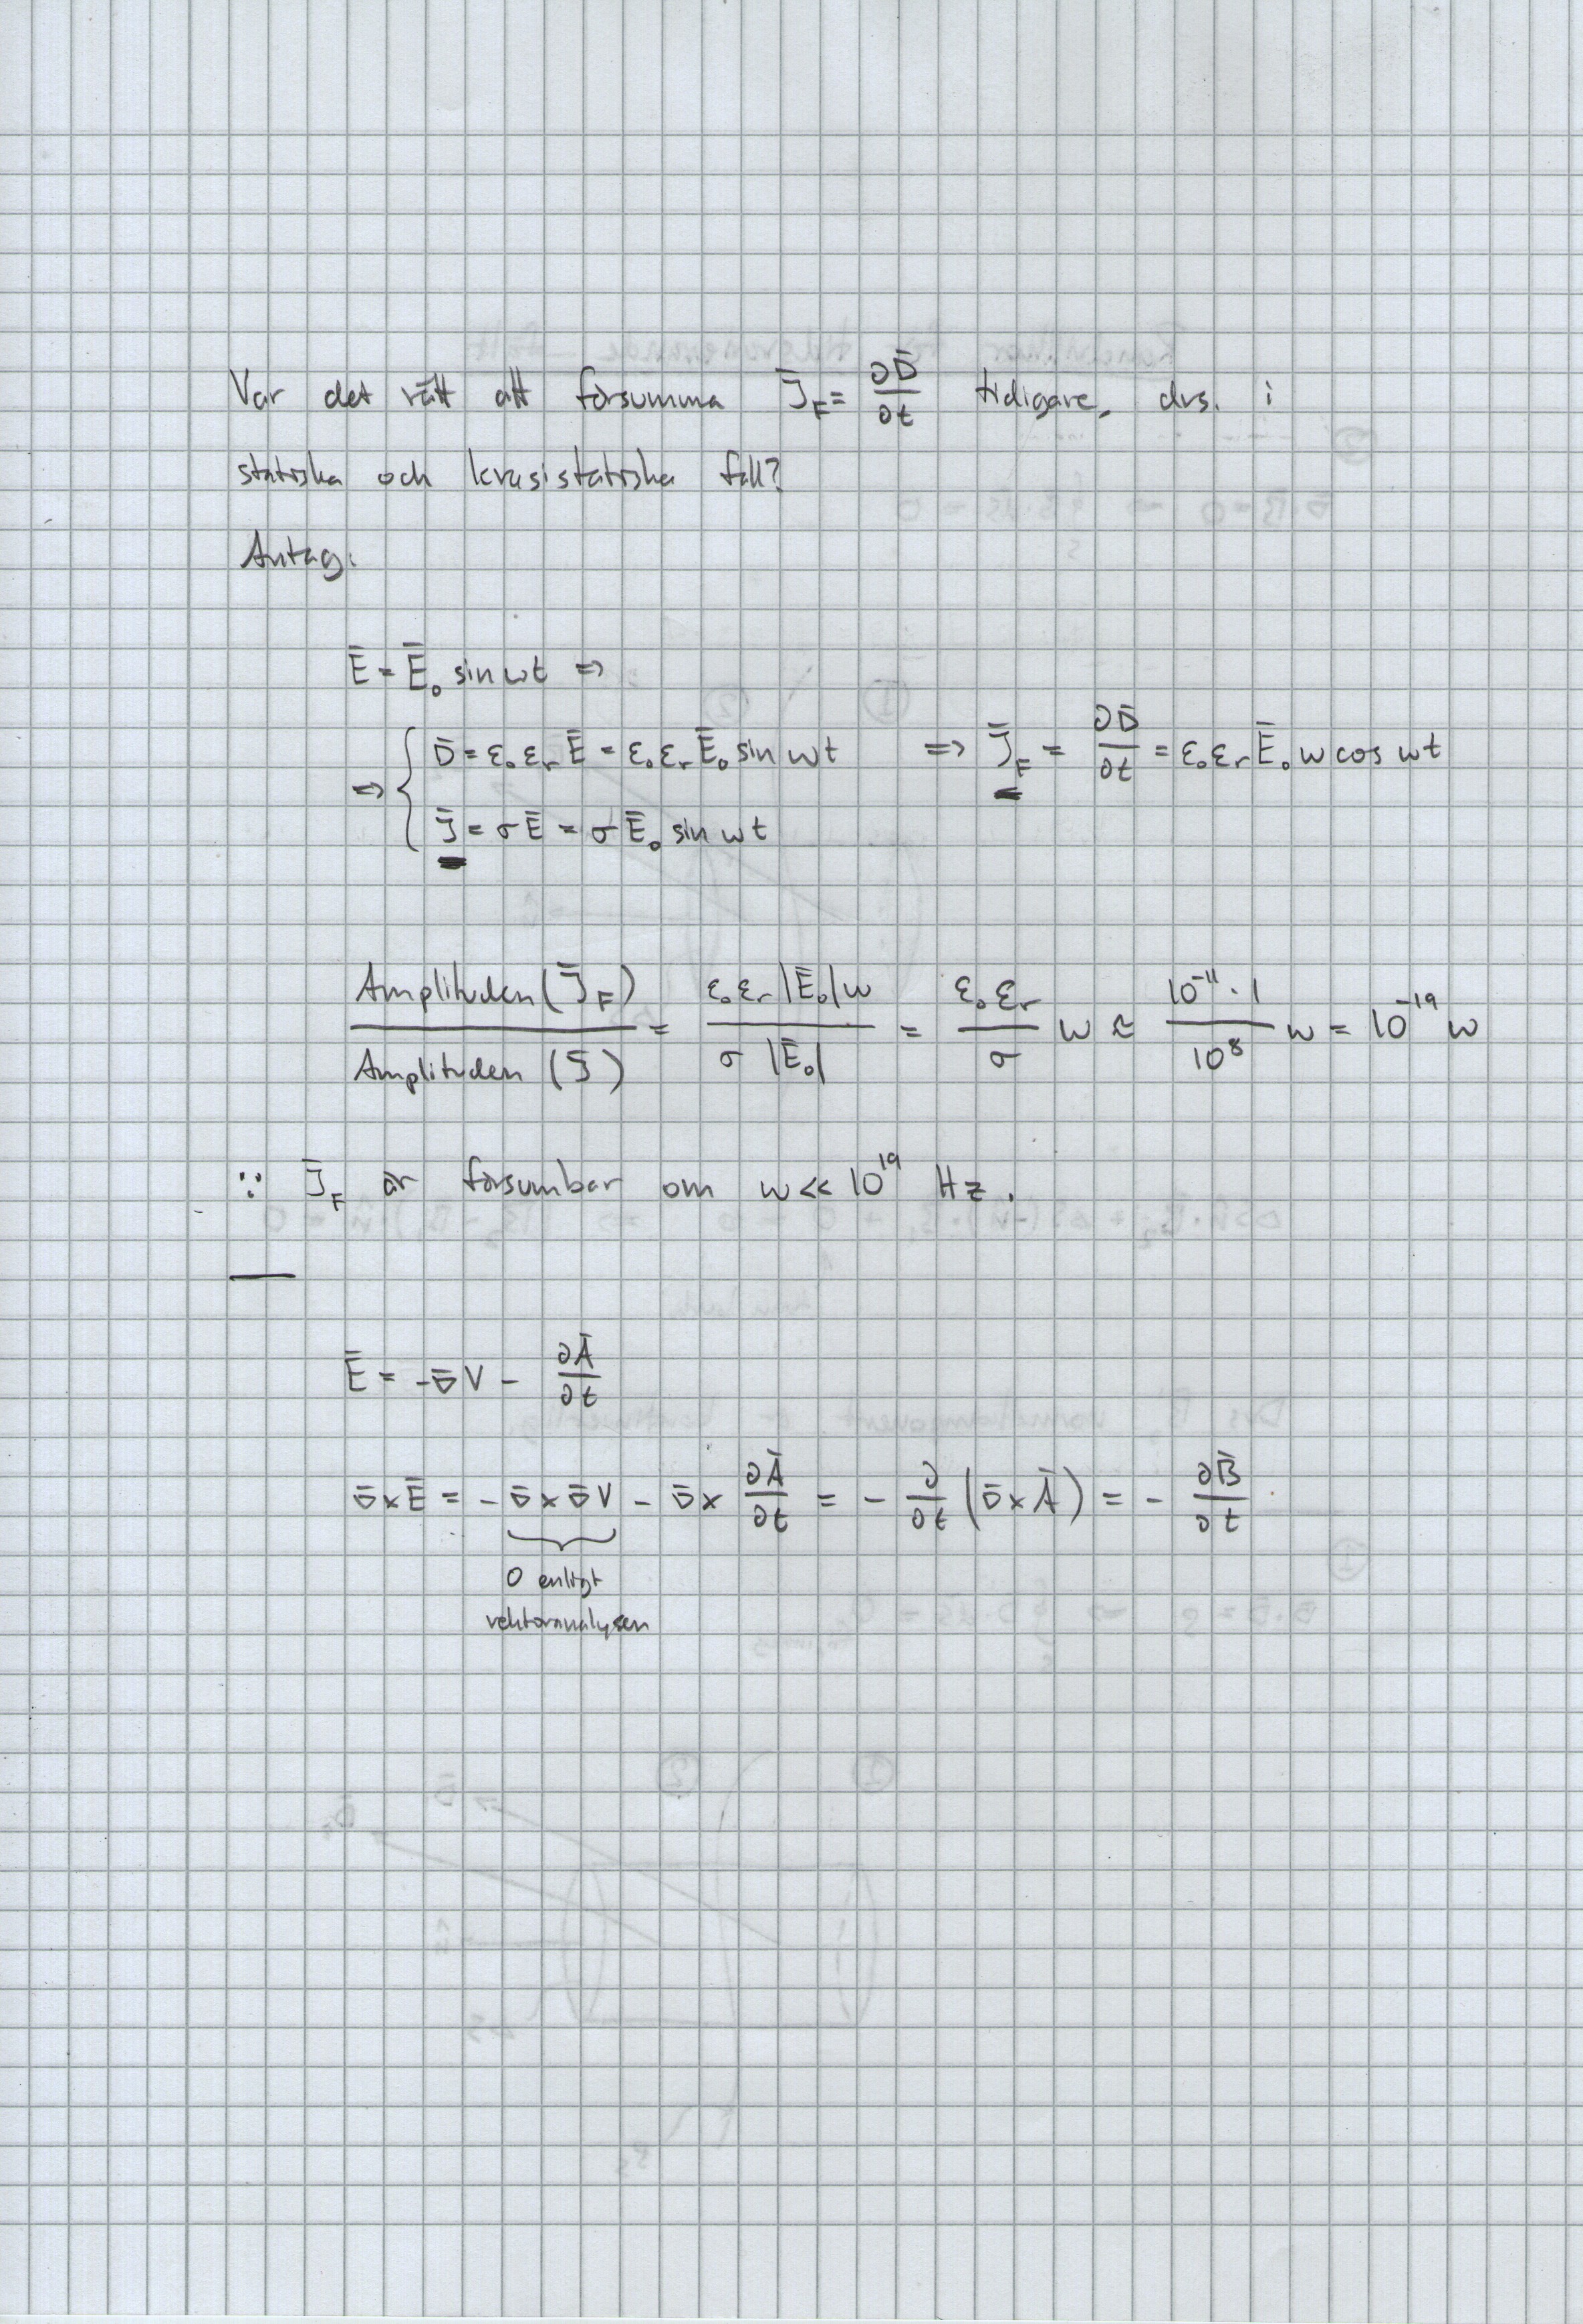 Var det rätt att försumma J̄_F = ∂D̄/∂t tidigare, dvs. i
statiska och kvasistatiska fall?
Antag:
Ē = Ē₀ sin ωt ⇒
⇒ { D̄ = ε₀ εᵣ Ē = ε₀ εᵣ Ē₀ sin ωt ⇒ J̄_F = ∂D̄/∂t = ε₀ εᵣ Ē₀ ω cos ωt
J̄ = σ Ē = σ Ē₀ sin ωt
Amplituden (J̄_F) / Amplituden (J̄) = ε₀ εᵣ |Ē₀| ω / σ |Ē₀| = ε₀ εᵣ / σ ω ≈ 10⁻¹¹ · 1 / 10⁸ ω = 10⁻¹⁹ ω
∵ J̄_F är försumbar om ω << 10¹⁹ Hz.
Ē = -∇̄V - ∂Ā/∂t
∇̄×Ē = -∇̄×∇̄V - ∇̄× ∂Ā/∂t = - ∂/∂t (∇̄×Ā) = - ∂B̄/∂t
0 enligt
vektoranalysen